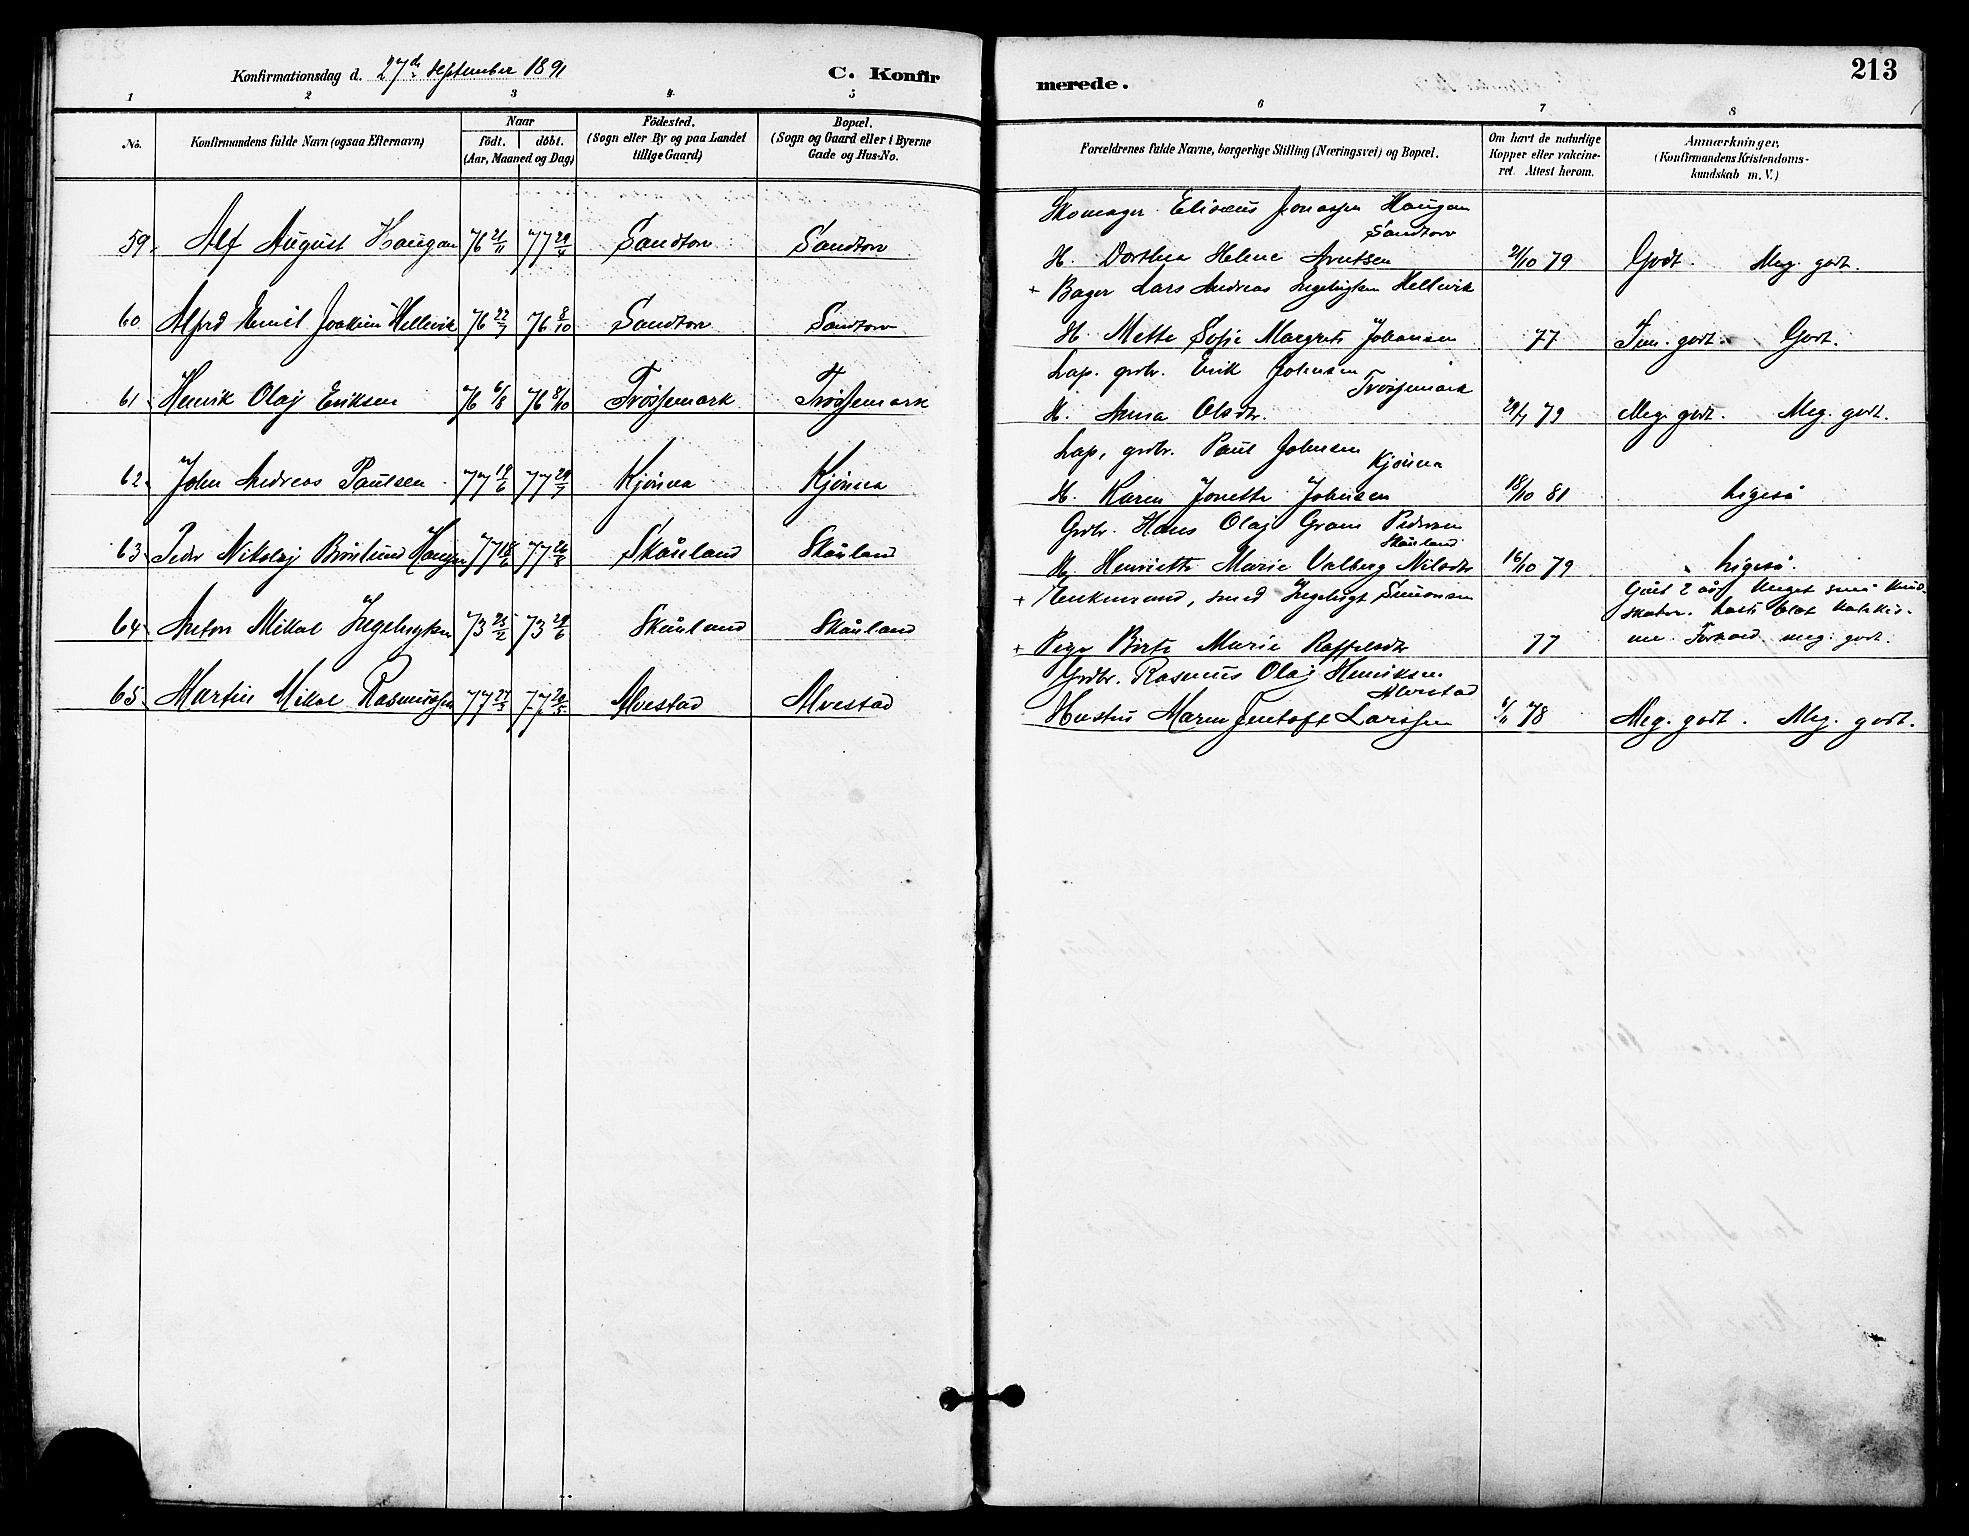 Konfirmationsdag d. 27de September 1891
C. Konfir
merede.
213
1 2 3 4 5 6 7 8
No.
Konfirmandens fulde Navn (ogsaa Efternavn)
Naar
født. døbt.
(Aar, Maaned og Dag)
Födested.
(Sogn eller By og paa Landet
tillige Gaard)
Bopæl.
(Sogn og Gaard eller i Byerne
Gade og Hus-No.
Forældrenes fulde Navne, borgerlige Stilling (Næringsvei) og Bopæl.
Om havt de naturlige
Kopper eller vakcine-
ret. Attest herom.
Anmærkninger,
(Konfirmandens Kristendoms-
kundskab m. V.)
Skomager Elisæus Jonassen Haugan
Sandtorv
59. Alf August Haugan 76 21/11 77 29/4 Sandtorv Sandtorv H. Dorthea Helene Arntsen 21/10 79 Godt. Meg. godt.
+ Bager Lars Andreas Ingebrigtsen Hellevik
60 Alfred Emil Joakim Hellevik 76 22/7 76 8/10 Sandtorv Sandtorv H. Mette Sofie Margrete Johansen 77 Tem. godt. Godt.
Lap. grdbr. Erik Johnsen
Trøssemark
61. Henrik Olaj Eriksen 76 6/8 76 8/10 Trøssemark Trøssemark H. Anna Olsdtr. 79 Meg. godt. Meg. godt.
Lap. grdbr. Paul Johnsen
Kjönna
62. John Andreas Paulsen 77 19/6 77 29/7 Kjönna Kjönna H. Karen Jonette Johnsen 18/10 81 Ligeså
Grdbr. Hans Olaj Gram Pedersen
Skånland
63. Peder Nikolaj Brönlund Hansen 77 18/6 77 26/8 Skånland Skånland H. Henriette Marie Valberg Nilsdtr 16/10 79 Ligeså.
+ Enkemand, smed Ingebrigt Simonsen
Gået 2 år. Meget små kund-
skaber. Læst blot Katekis-
64. Anton Mikal Ingebrigtsen 73 73 29/6 Skånland Skånland + Pige Birte Marie Raffelsdtr 77 me. Forhold meg. godt.
Grdbr. Rasmus Olaj Henriksen
Alvestad
65. Martin Mikal Rasmussen 77 27/3 77 20/5 Alvestad Alvestad Hustru Maren Tentoft Larssen 78 Meg. godt. Meg. godt.